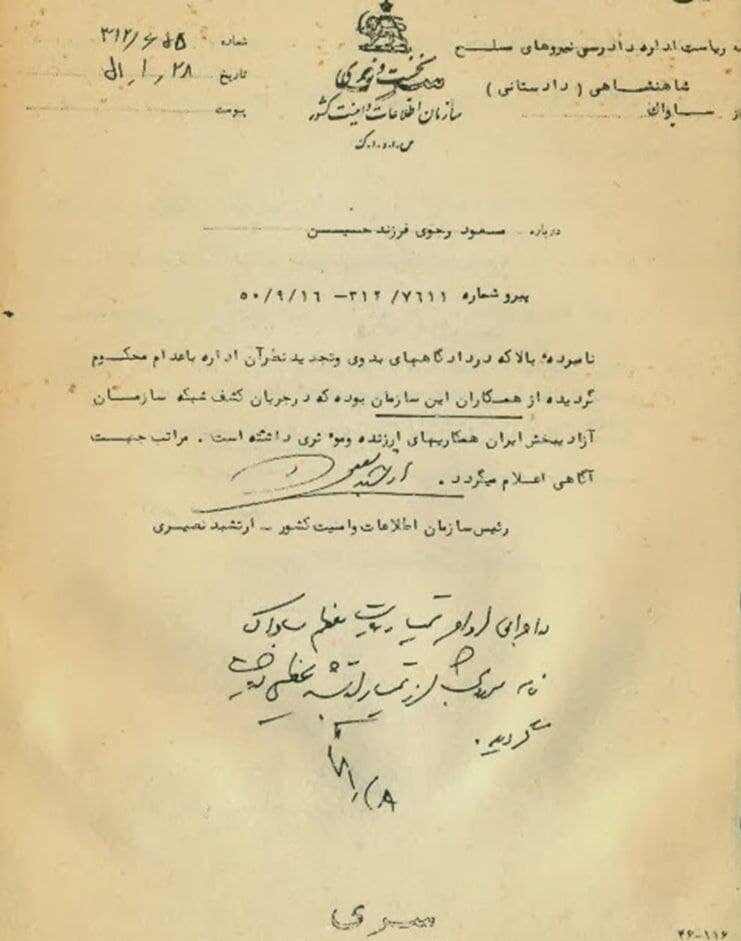 به ریاست اداره دادرسی نیروهای مسلح
شاهنشاهی ( دادستانی )
از ساواک
نخست وزیری
سازمان اطلاعات و امنیت کشور
س.ا.و.ا.ک
شماره ۳۱۲/
تاریخ ۲۸ ر ۱ ر ۵۱
پیوست
درباره مسعود رجوی فرزند حسین
پیرو شماره ۳۱۲/۷۶۱۱ – ۵۰/۹/۱۶
نامبرده بالا که در دادگاههای بدوی و تجدید نظر آن اداره باعدام محکوم
گردیده از همکاران این سازمان بوده که در جریان کشف شبکه سازمان
آزاد یبخش ایران همکاریهای ارزنده و موثری داشته است . مراتب جهت
آگاهی اعلام میگردد .
رئیس سازمان اطلاعات و امنیت کشور – ارتشبد نصیری
ریاست معظم ساواک
نامه
گردید .
سری
۴۶-۱۱۶